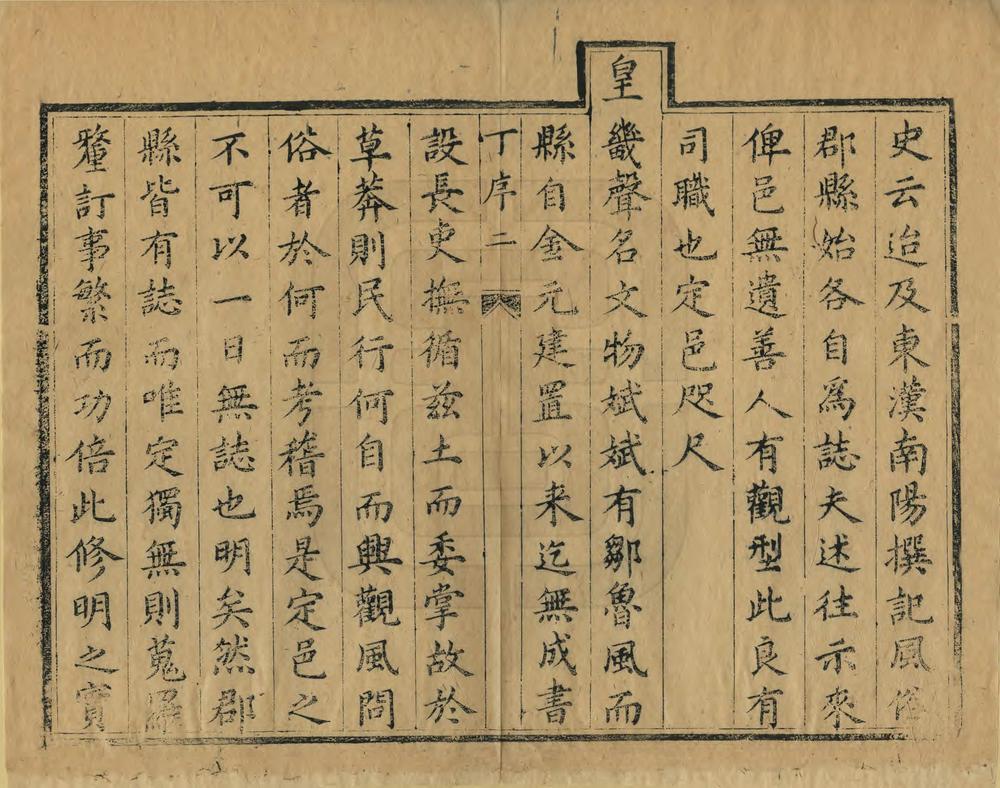 史云迨及東漢南陽撰記風俗
郡縣始各自爲誌夫述往示來
俾邑無遺善人有觀型此良有
司職也定邑咫尺
皇畿聲名文物斌斌有鄒魯風而
縣自金元建置以来迄無成書
丁序二
設長吏撫循兹土而委掌故於
草莽則民行何自而興觀風問
俗者於何而考稽焉是定邑之
不可以一日無誌也明矣然郡
縣皆有誌而唯定獨無則蒐羅
釐訂事繁而功倍此修明之實